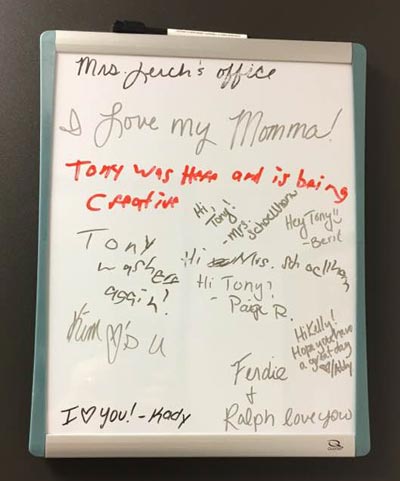 Mrs. Lerch's office
I Love my Momma!
Tony was Here and is being
Creative
Hi,
Tony!
-Mrs.
Schoellhorn
Hey Tony
-Beril
Tony
was here
aggin!
Hi Mrs. Schoellhorn
Hi Tony!
- Paige R.
Kim ♡'s U
Hi Kelly!
Hope you have
a great day
♡ Abby
Ferdie
+
Ralph love you
I ♡ you! - Kady
Quartet